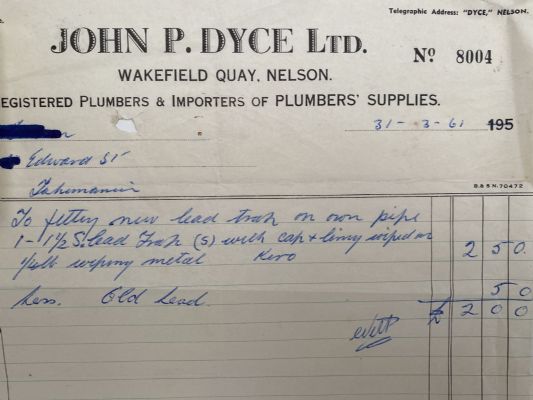 Telegraphic Address: "DYCE," NELSON.
JOHN P. DYCE LTD.
No 8004
WAKEFIELD QUAY, NELSON.
EGISTERED PLUMBERS & IMPORTERS OF PLUMBERS' SUPPLIES.
31-3-61 195
Edward St
Tahunanui
B.& S N.-70472
To fitting new lead trap on own pipe
1- 1½ S. lead Trap (S) with cap & lining wiped on
¼lb wiping metal Kero 2 5 0.
Less. Old Lead. 5 0
£ 2 0 0